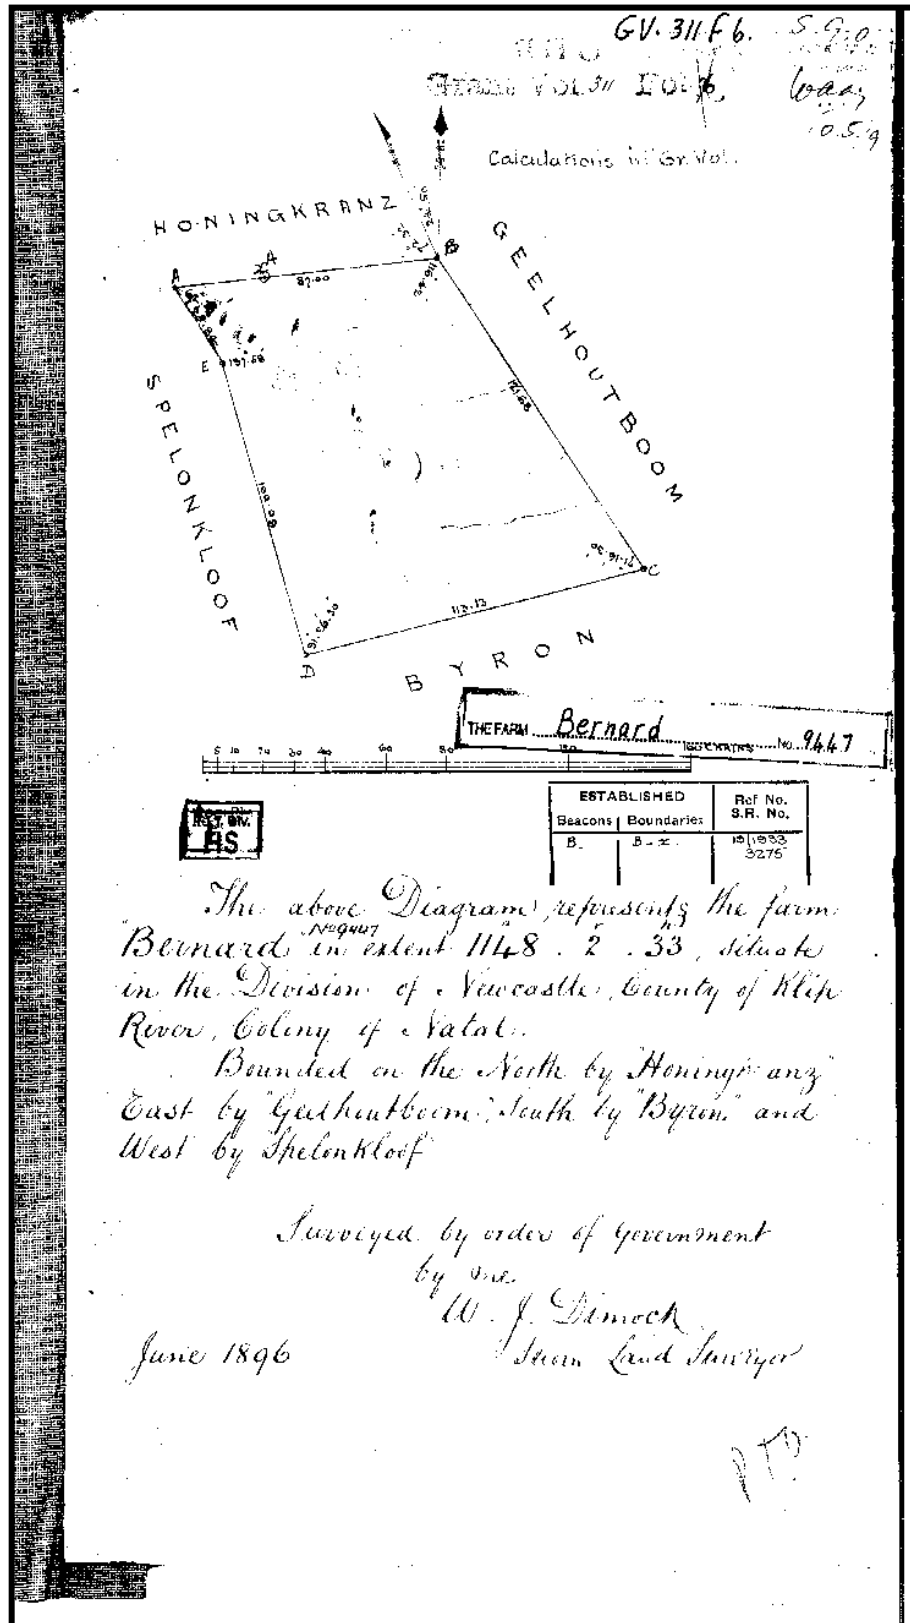 GV. 311 F 6.
S.G.O
Grant Vol 311 Fol 6,
Calculations in Gr. Vol.
HONINGKRANZ
GEELHOUTBOOM
SPELONKLOOF
BYRON
A
B
87.00
116.42
E
197.58
121.68
100.08
71.16.30
C
113.13
91.06.30
D
THE FARM Bernard No. 9447
5 10 20 30 40 60 80 120 160 CHAINS
HS
ESTABLISHED Ref No.
Beacons Boundaries S.R. No.
B. B-x. 19/1933
3275
The above Diagram represents the farm
No 9447
"Bernard" in extent 1148 . 2 . 33, situate
in the Division of Newcastle, County of Klip
River, Colony of Natal.
Bounded on the North by "Honingkranz"
East by "Geelhoutboom", South by "Byron" and
West by Spelonkloof
Surveyed by order of Government
by me.
W. J. Dimock
June 1896 Sworn Land Surveyor
P T O